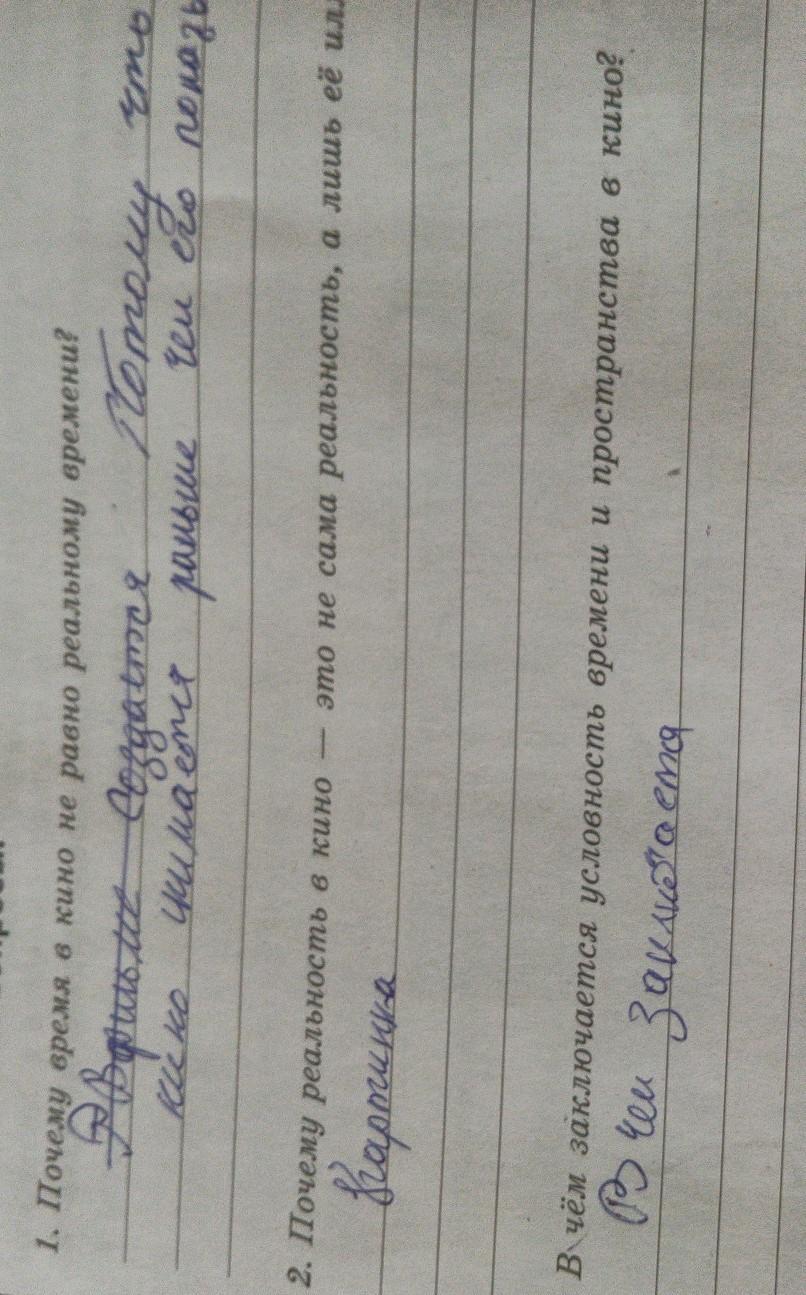 1. Почему время в кино не равно реальному времени?
Фильм создается Потому что
кино снимается раньше чем его показы
2. Почему реальность в кино — это не сама реальность, а лишь её ил
Картинка
В чём заключается условность времени и пространства в кино?
В чем заключается